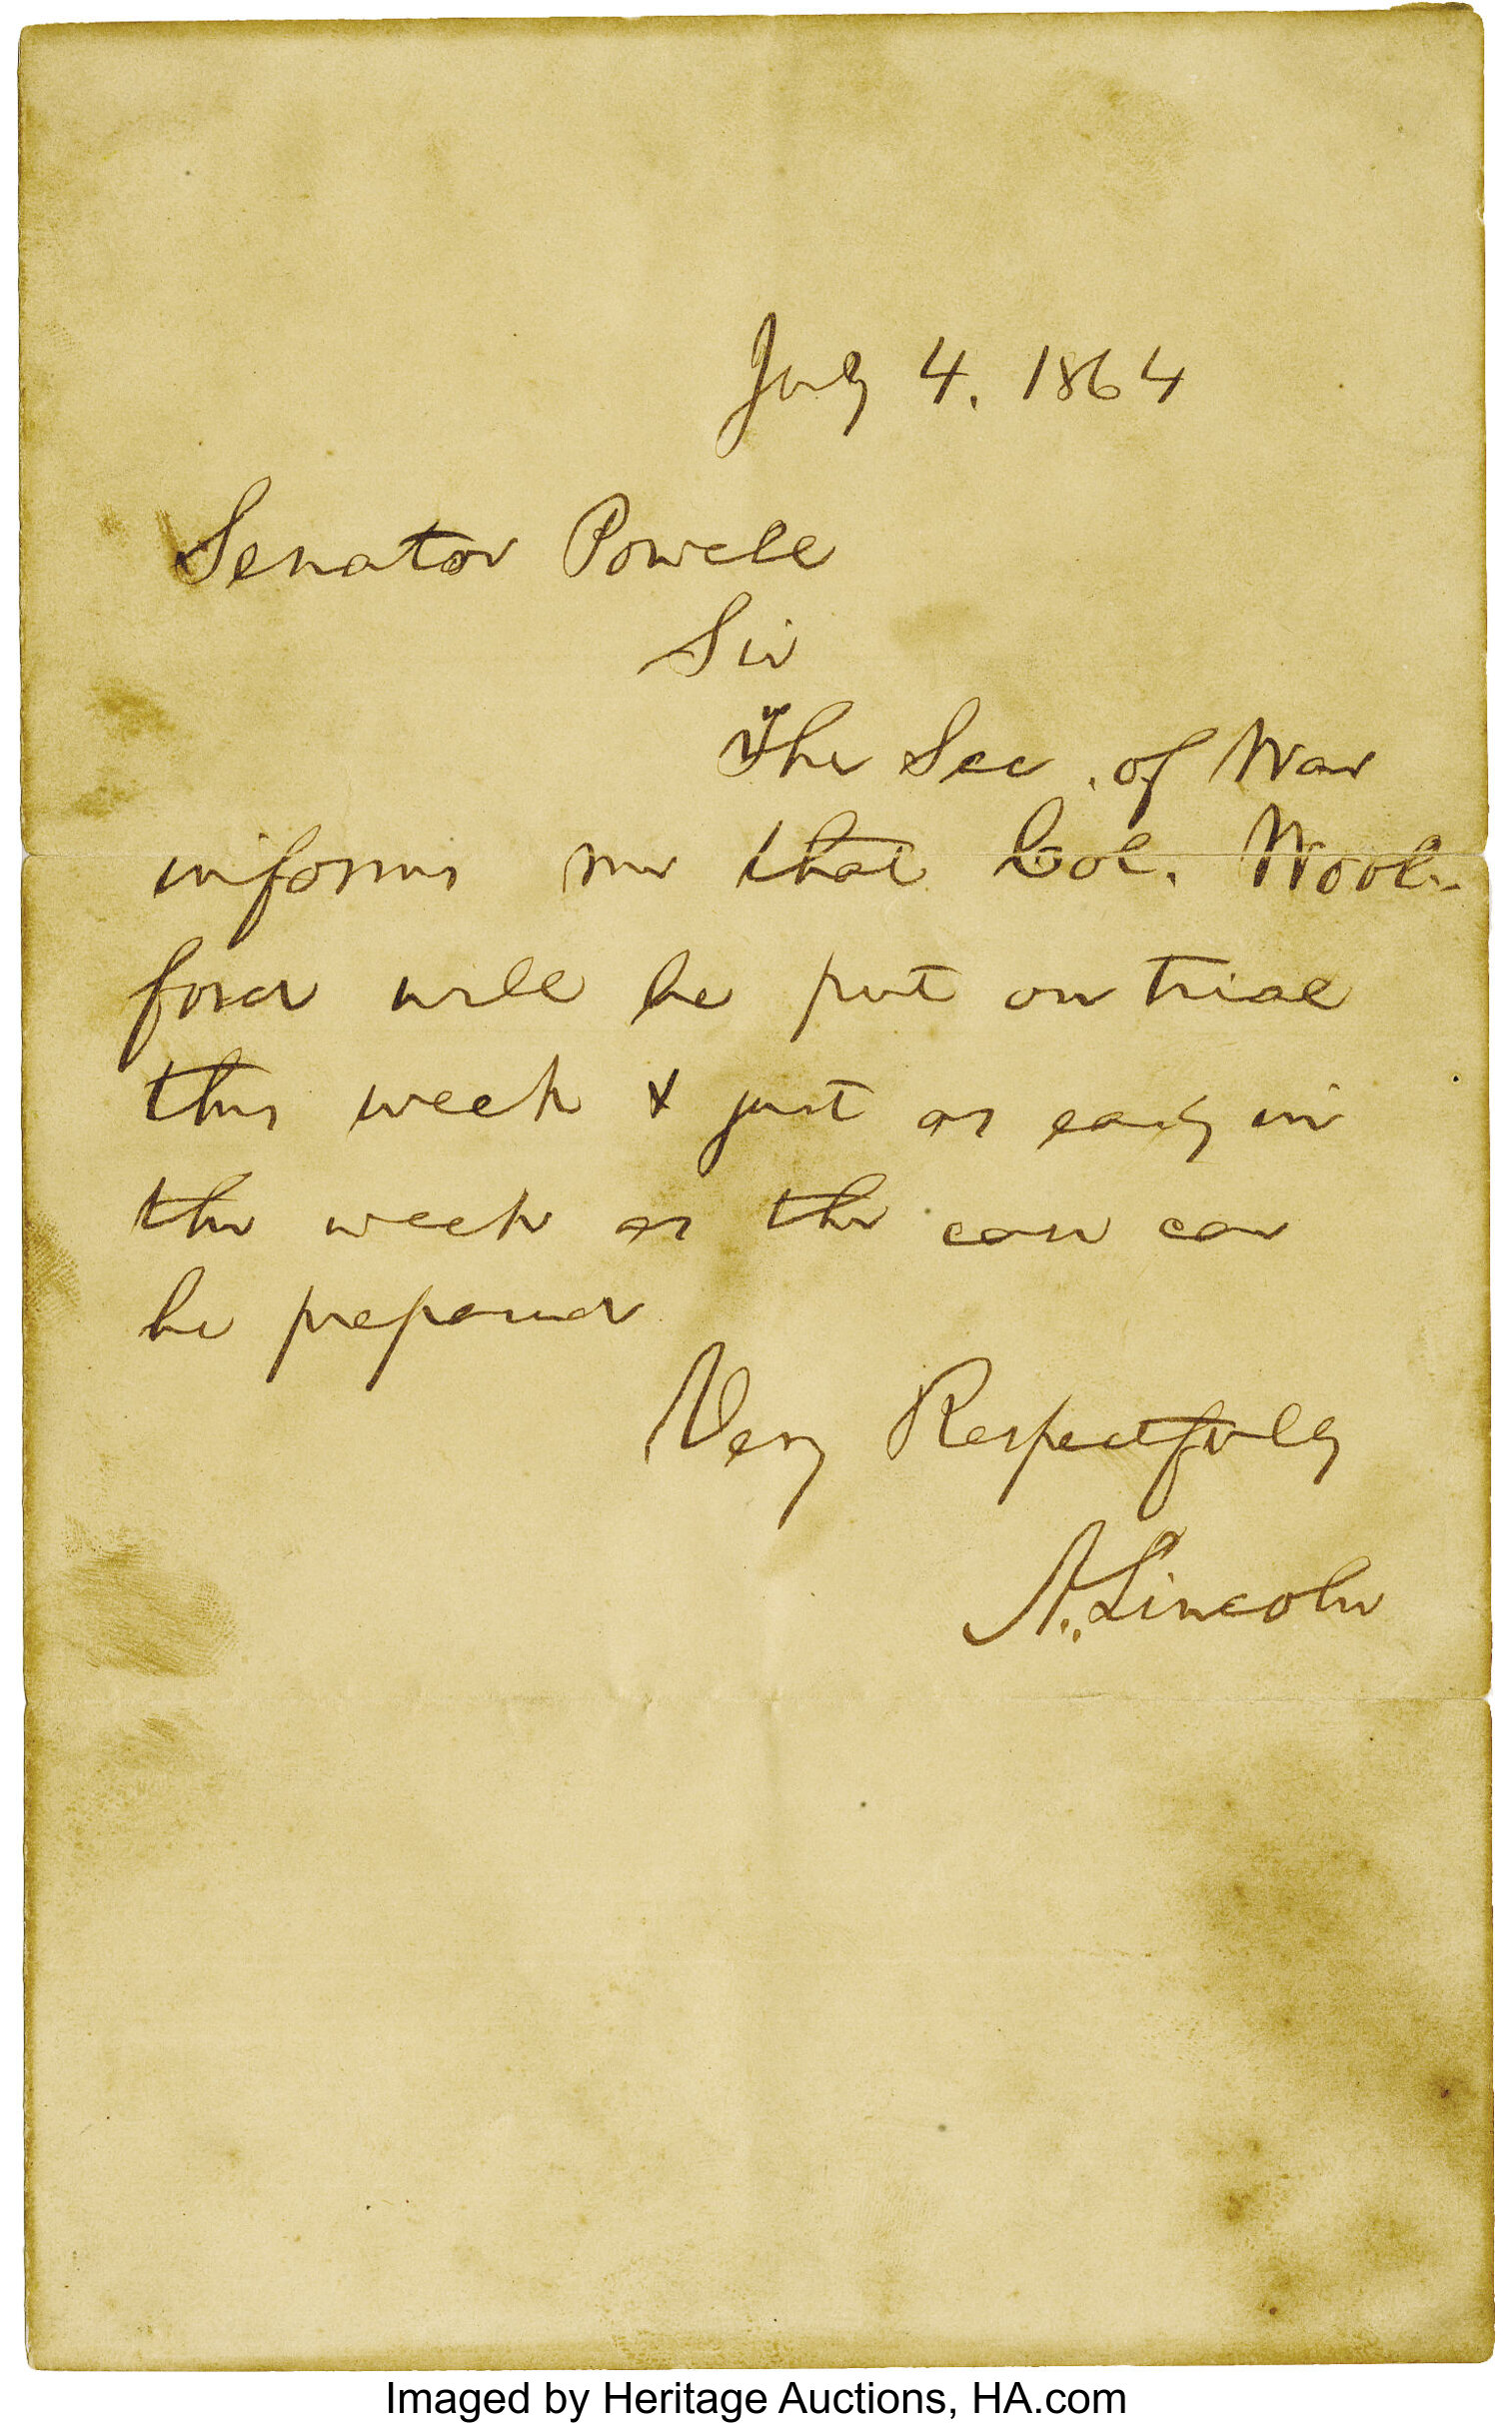 July 4, 1864
Senator Powell
Sir
The Sec. of War
informs me that Col. Wool-
ford will be put on trial
this week & just as early in
the week as the case can
be prepared
Very Respectfully
A. Lincoln
Imaged by Heritage Auctions, HA.com